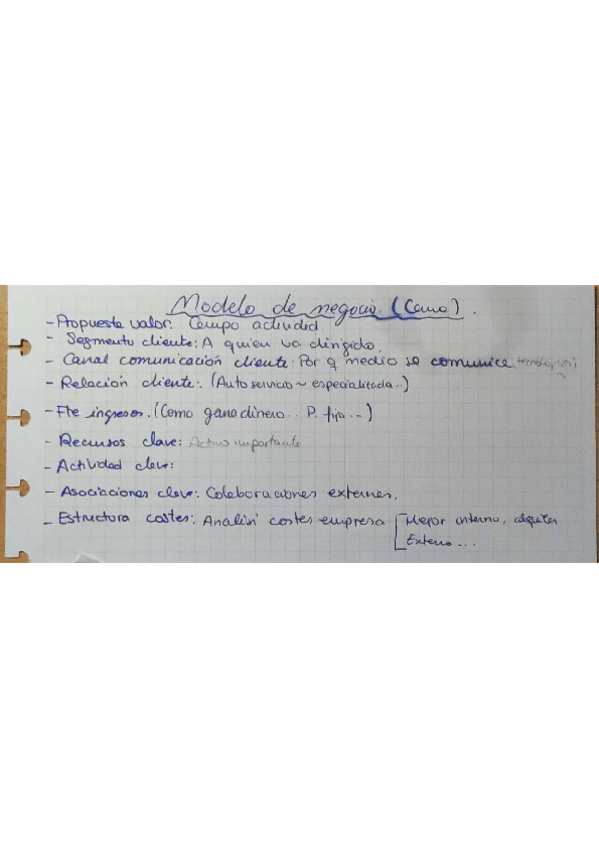 Modelo de negocio. (Canva).
- Propuesta valor: Campo actividad.
- Segmento cliente: A quien va dirigido.
- Canal comunicación cliente: Por q medio se comunica
- Relación cliente: (Autoservicio ~ especializada..)
- Fte ingresos. (Como gano dinero.. P. fijo...)
- Recursos clave: Activo importante
- Actividad clave:
- Asociaciones clave: Colaboraciones externas.
- Estructura costes: Analisi costes empresa [Mejor interno, alquiler
Externo...